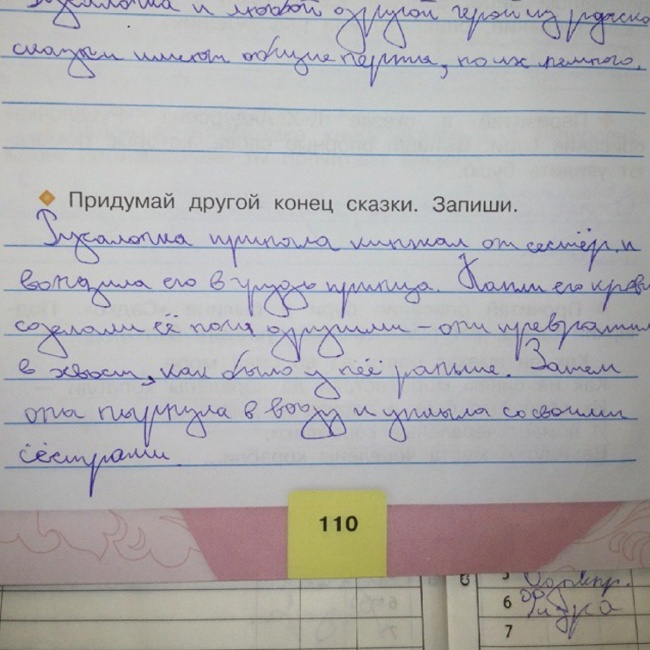 Русалочка и любой другой герой из русско
сказки имеют общие черты, но их немного.
Придумай другой конец сказки. Запиши.
Русалочка приняла кинжал от сестёр и
вонзила его в грудь принца. Капли его крови
сделали её ноги другими – они превратили
в хвост, как было у неё раньше. Затем
она нырнула в воду и уплыла со своими
сёстрами.
110
5
6 Физра
7